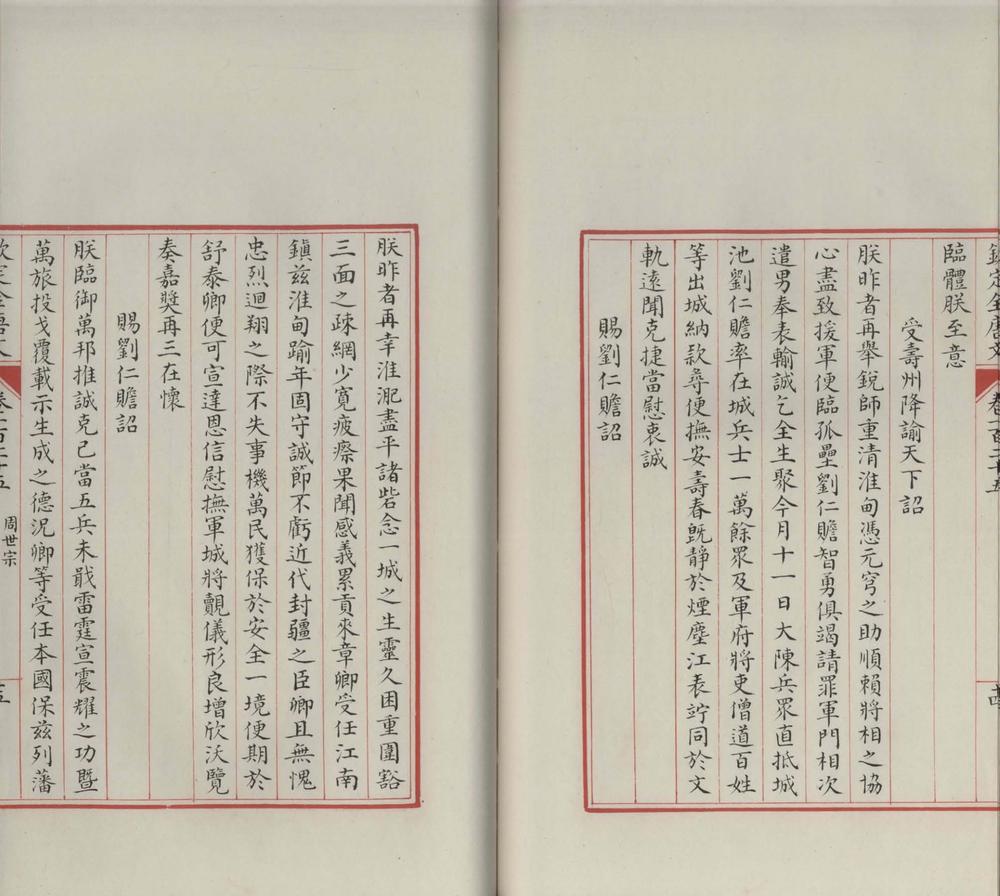 欽定全唐文 卷一百二十五 十四
臨體朕至意
受壽州降諭天下詔
朕昨者再舉銳師重清淮甸憑元穹之助順賴將相之協
心盡致援軍便臨孤壘劉仁贍智勇俱竭請罪軍門相次
遣男奉表輸誠乞全生聚今月十一日大陳兵眾直抵城
池劉仁贍率在城兵士一萬餘眾及軍府將吏僧道百姓
等出城納款尋便撫安壽春旣靜於煙塵江表竚同於文
軌遠聞克捷當慰衷誠
賜劉仁贍詔
朕昨者再幸淮淝盡平諸砦念一城之生靈久困重圍豁
三面之疎網少寬疲瘵果聞感義累貢來章卿受任江南
鎭兹淮甸踰年固守誠節不虧近代封疆之臣卿且無愧
忠烈迴翔之際不失事機萬民獲保於安全一境便期於
舒泰卿便可宣達恩信慰撫軍城將覿儀形良增欣沃覽
奏嘉獎再三在懷
賜劉仁贍詔
朕臨御萬邦推誠克己當五兵未戢雷霆宣震耀之功暨
萬旅投戈覆載示生成之德況卿等受任本國保兹列藩
欽定全唐文 卷一百二十五 周世宗 十五